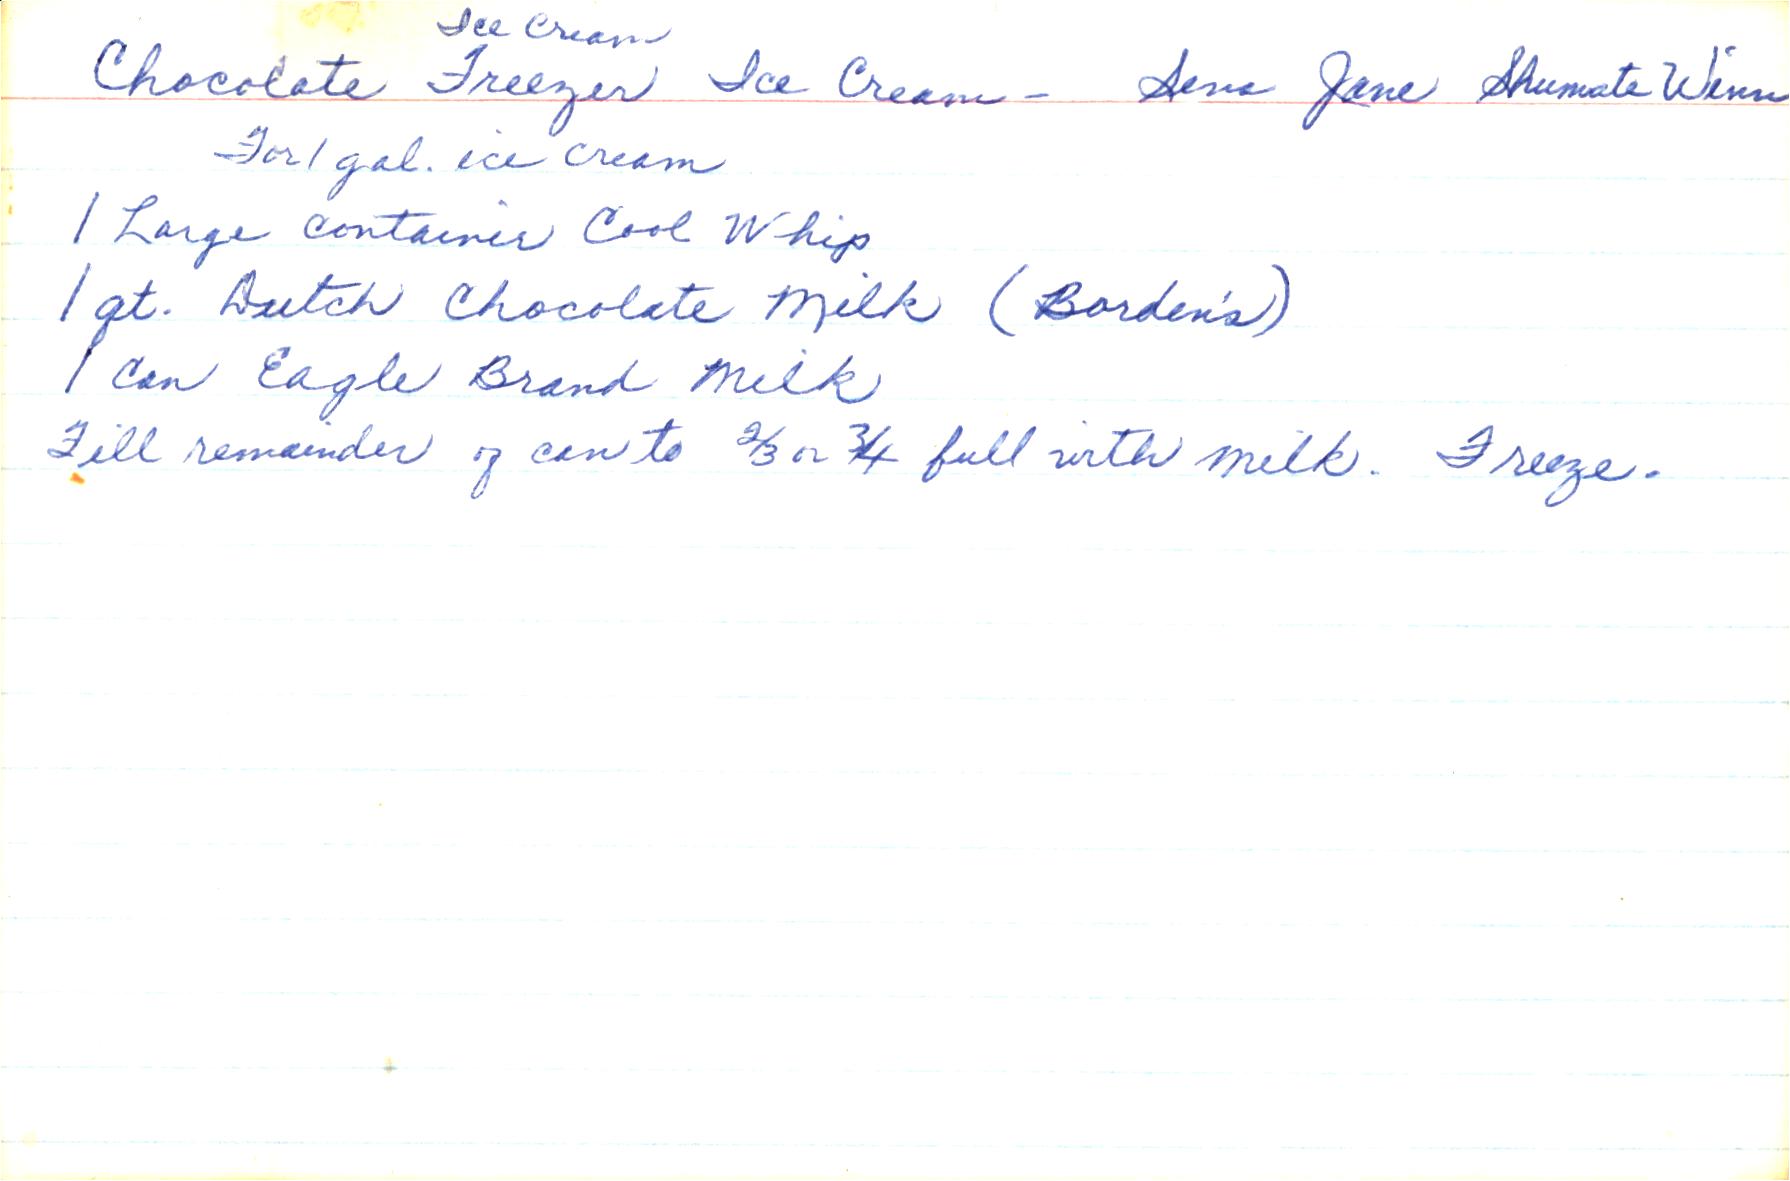 Ice Cream
Chocolate Freezer Ice Cream - Sena Jane Shumate Winn
For 1 gal. ice cream
1 Large container Cool Whip
1 qt. Dutch Chocolate Milk (Borden's)
1 can Eagle Brand Milk
Fill remainder of can to 2/3 or 3/4 full with milk. Freeze.